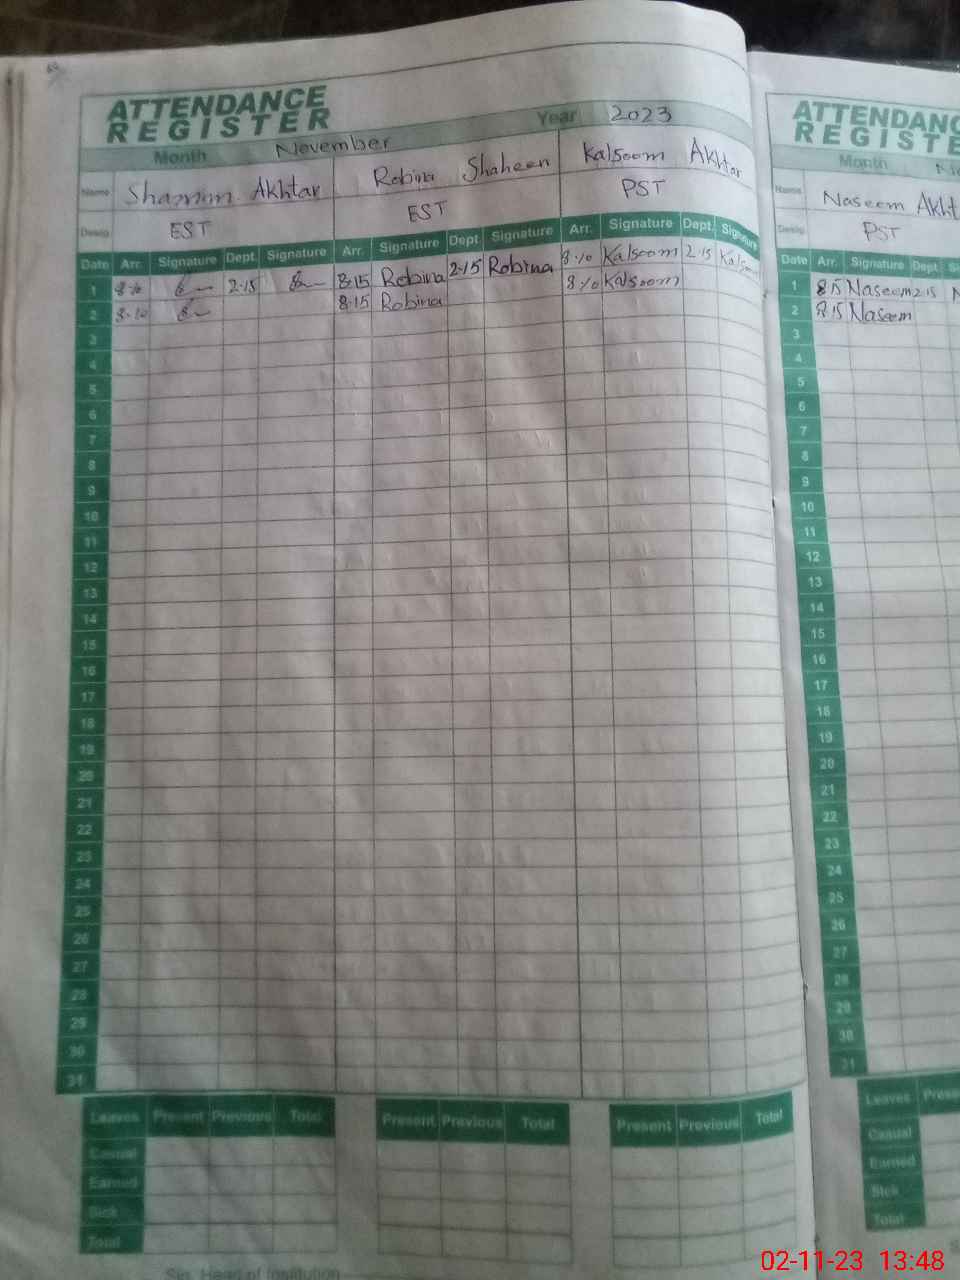 ATTENDANCE
REGISTER
Month November Year 2023
Name Shamim Akhtar Robina Shaheen Kalsoom Akhtar
Desig EST EST PST
Date Arr. Signature Dept. Signature Arr. Signature Dept Signature Arr. Signature Dept. Signature
1 8:10 2-15 8:15 Robina 2-15 Robina 8:10 Kalsoom 2-15 Kalsoom
2 8-10 8:15 Robina 8:10 Kalsoom
3
4
5
6
7
8
9
10
11
12
13
14
15
16
17
18
19
20
21
22
23
24
25
26
27
28
29
30
31
Leaves Present Previous Total Present Previous Total Present Previous Total
Casual
Earned
Sick
Total
Sig. Head of Institution
ATTENDANC
REGISTE
Month
Name Naseem Akht
Desig PST
Date Arr. Signature Dept. Sig
1 8:15 Naseem 2-15 N
2 8:15 Naseem
3
4
5
6
7
8
9
10
11
12
13
14
15
16
17
18
19
20
21
22
23
24
25
26
27
28
29
30
31
Leaves Prese
Casual
Earned
Sick
Total
02-11-23 13:48